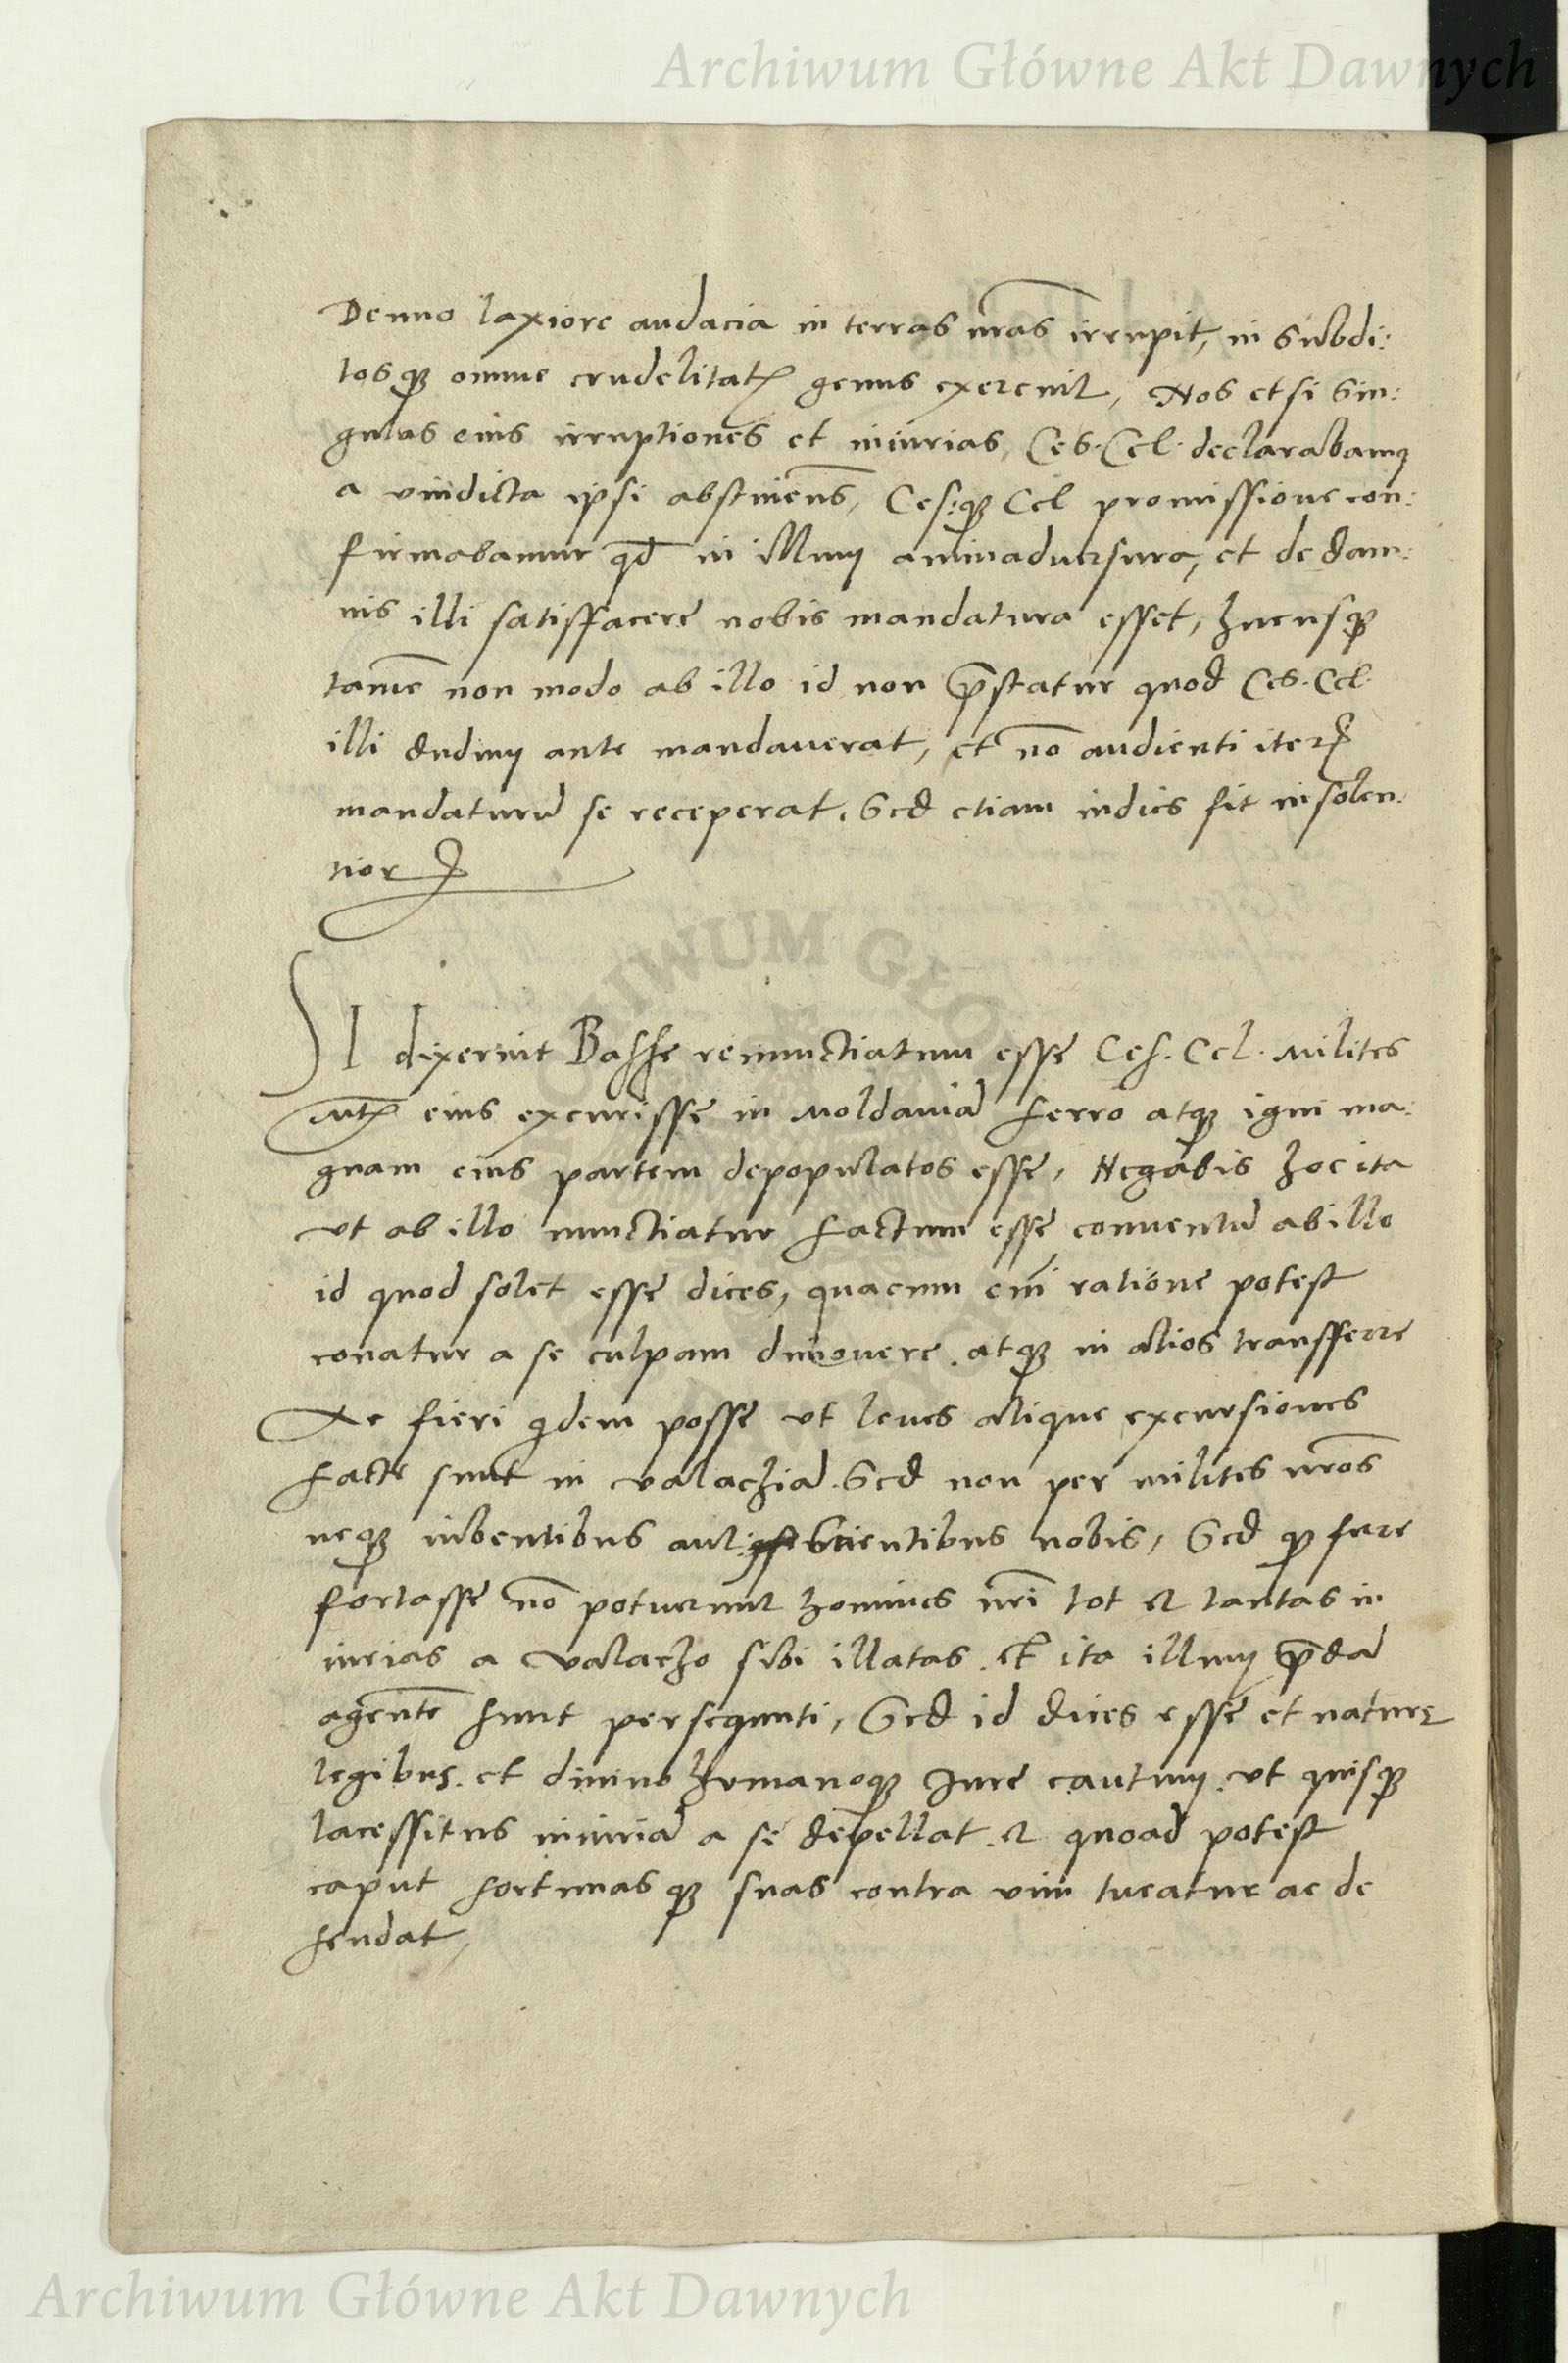 Archiwum Główne Akt Dawnych
Denuo laxiore audacia in terras nr̃as irrupit, in subdi:
tosq3 omne crudelitatꝭ genus exercuit, Nos etsi sin:
gulas eius irruptiones et iniurias, Ces. Cel. declarabamꝰ
a vindicta ipsi abstinẽns, Ces:q3 Cel promissione con:
firmabamur qđ in illum animaduersura, et de dam:
nis illi satisfacere nobis mandatura esset, hucusq3
tamẽ non modo ab illo id non p̃statur quod Ces. Cel.
illi dudum ante mandauerat, et nõ audienti iterꝭ
mandaturũ se receperat. Sed etiam indies fit insolen:
tior
SI dixerint Basse renunctiatum esse Ces. Cel. Milites
Mtꝭ eius excurisse in Moldauiã ferro atq3 igni ma:
gnam eius partem depopulatos esse, Negabis hoc ita
ut ab illo nunctiatur factum esse, conuentũ ab illo
id quod solet esse dices, quacum em̃ ratione potest
conatur a se culpam dimouere. atq3 in alios transferre
Ac fieri qdem posse ut leues alique excursiones
facte sunt in valachiã. Sed non per milites nr̃os
neq3 iubentibus aut scientibus nobis, Sed q3 ferre
fortasse nõ potuerunt homines nr̃i tot et tantas in
iurias a Valacho sibi illatas. Et ita illum p̃dã
agentẽ sunt persequuti, Sed id dices esse et naturę
legibus. et diuino humanoq3 Iure cautum. ut quisq3
lacessitus iniuriã a se depellat. et quoad potest
caput fortunasq3 suas contra vim tueatur ac de
fendat,
Archiwum Główne Akt Dawnych